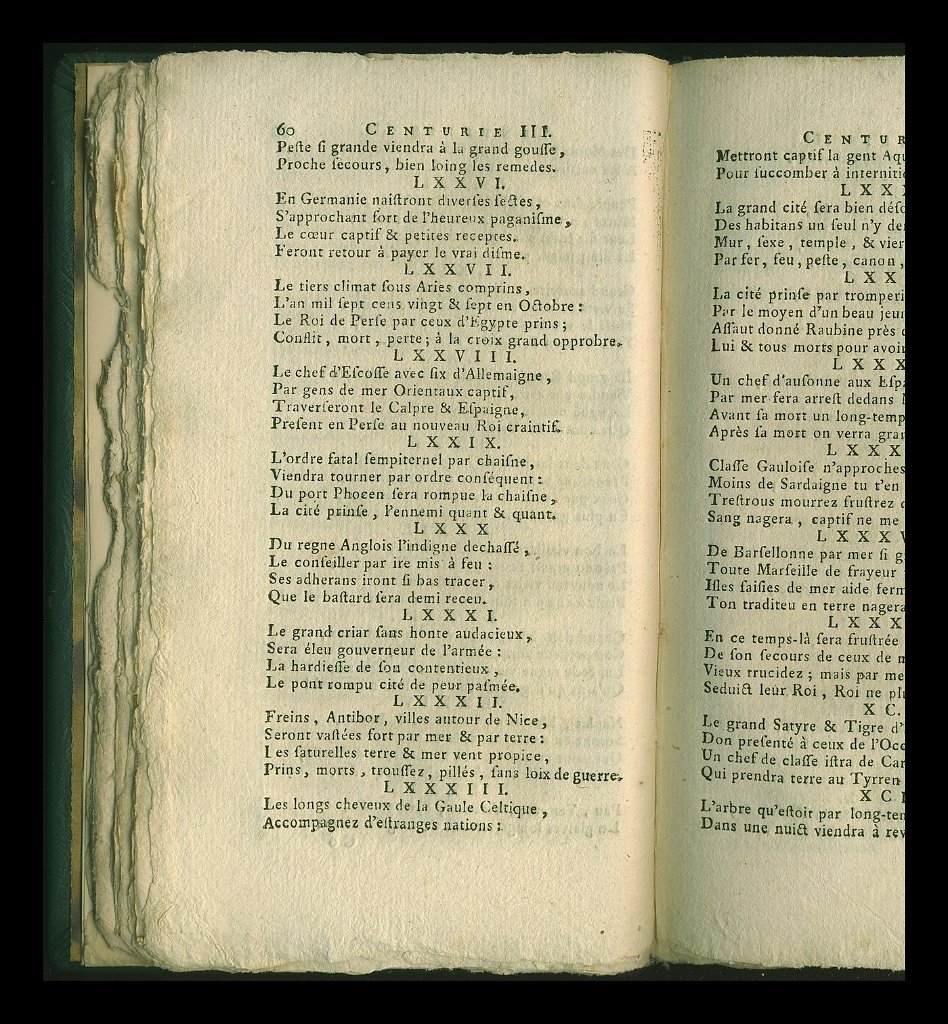 60 CENTURIE III.
Peſte ſi grande viendra à la grand gouſſe,
Proche ſecours, bien loing les remedes.
LXXVI.
En Germanie naiſtront diverſes ſectes,
S'approchant fort de l'heureux paganiſme,
Le cœur captif & petites receptes.
Feront retour à payer le vrai diſme.
LXXVII.
Le tiers climat ſous Aries comprins,
L'an mil ſept cens vingt & ſept en Octobre:
Le Roi de Perſe par ceux d'Egypte prins;
Conflit, mort, perte; à la croix grand opprobre.
LXXVIII.
Le chef d'Eſcoſſe avec ſix d'Allemaigne,
Par gens de mer Orientaux captif,
Traverſeront le Calpre & Eſpaigne,
Preſent en Perſe au nouveau Roi craintif.
LXXIX.
L'ordre fatal ſempiternel par chaiſne,
Viendra tourner par ordre conſéquent:
Du port Phocen ſera rompue la chaiſne,
La cité prinſe, l'ennemi quant & quant.
LXXX
Du regne Anglois l'indigne dechaſſé,
Le conſeiller par ire mis à feu:
Ses adherans iront ſi bas tracer,
Que le baſtard ſera demi receu.
LXXXI.
Le grand criar ſans honte audacieux,
Sera éleu gouverneur de l'armée:
La hardieſſe de ſon contentieux,
Le pont rompu cité de peur paſmée.
LXXXII.
Freins, Antibor, villes autour de Nice,
Seront vaſtées fort par mer & par terre:
Les ſaturelles terre & mer vent propice,
Prins, morts, trouſſez, pillés, ſans loix de guerre.
LXXXIII.
Les longs cheveux de la Gaule Celtique,
Accompagnez d'eſtranges nations:
CENTUR
Mettront captif la gent Aqu
Pour ſuccomber à internitio
LXXX
La grand cité ſera bien déſo
Des habitans un ſeul n'y de
Mur, ſexe, temple, & vier
Par fer, feu, peſte, canon,
LXX
La cité prinſe par tromperi
Par le moyen d'un beau jeun
Aſſaut donné Raubine près
Lui & tous morts pour avoir
LXXX
Un chef d'auſonne aux Eſpa
Par mer fera arreſt dedans
Avant ſa mort un long-temp
Après ſa mort on verra gran
LXXX
Claſſe Gauloiſe n'approches
Moins de Sardaigne tu t'en
Treſtrous mourrez fruſtrez
Sang nagera, captif ne me
LXXXV
De Barſellonne par mer ſi g
Toute Marſeille de frayeur
Iſles ſaiſies de mer aide ferm
Ton traditeu en terre nagera
LXXX
En ce temps-là ſera fruſtrée
De ſon ſecours de ceux de m
Vieux trucidez; mais par me
Seduict leur Roi, Roi ne pl
XC.
Le grand Satyre & Tigre d'
Don preſenté à ceux de l'Occ
Un chef de claſſe iſtra de Car
Qui prendra terre au Tyrren
XCI
L'arbre qu'eſtoit par long-ten
Dans une nuict viendra à rev